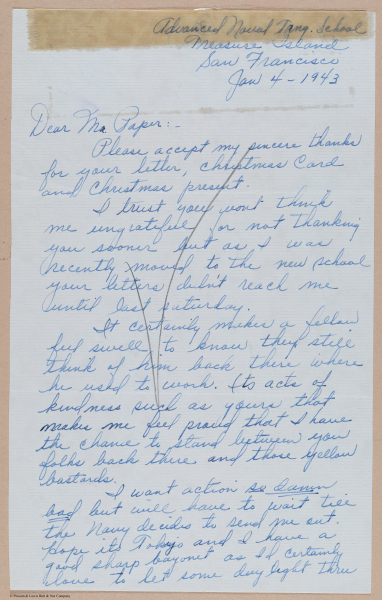 Advanced Naval Trng. School
Treasure Island
San Francisco
Jan 4 - 1943
Dear Mr. Paper:-
Please accept my sincere thanks
for your letter, Christmas Card
and Christmas present.
I trust you wont think
me ungrateful for not thanking
you sooner but as I was
recently moved to the new school
your letters didn't reach me
until last saturday.
It certainly makes a fellow
feel swell to know they still
think of him back there where
he used to work. Its acts of
kindness such as yours that
makes me feel proud that I have
the chance to stand between you
folks back there and those yellow
bastards.
I want action so damn
bad but will have to wait till
the Navy decides to send me out.
Hope it's Tokyo and I have a
good sharp bayonet as I'd certainly
love to let some daylight thru